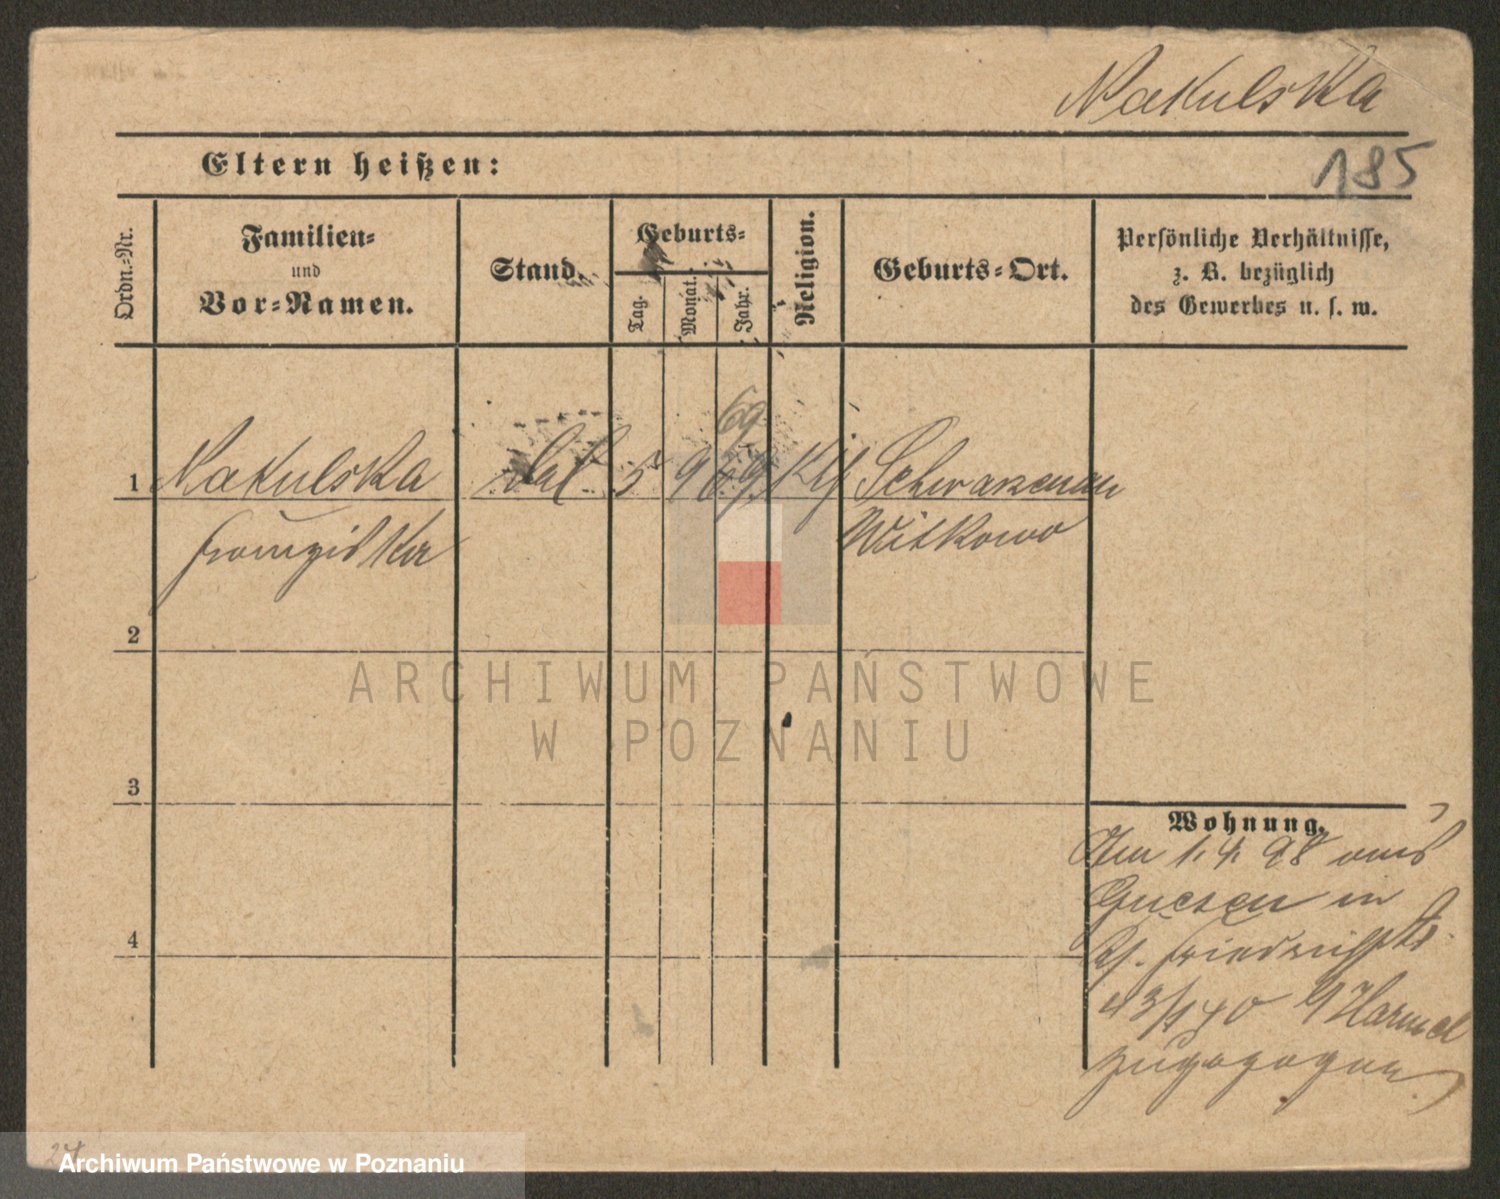 Nakulska
185
Eltern heißen:
Ordn.-Nr.
Familien-
und
Vor-Namen.
Stand.
Geburts-
Tag.
Monat.
Jahr.
Religion.
Geburts-Ort.
Persönliche Verhältnisse,
z. B. bezüglich
des Gewerbes u. s. w.
69
1 Nakulska 5 9 69 Schwarzenau
Franziska Witkowo
2
ARCHIWUM PAŃSTWOWE
W POZNANIU
3
Wohnung.
Am 1. 4. 98 aus
Gnesen in
Friedrichstr.
zugezogen
4
27
Archiwum Państwowe w Poznaniu